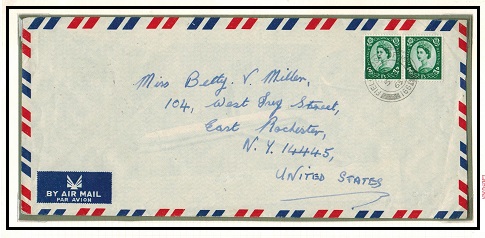 Miss Betty. V. Miller,
104, West Ivy Street,
East Rochester,
N.Y. 14445,
UNITED STATES
BY AIR MAIL
PAR AVION